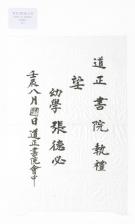 道正書院執禮
望
幼學張德必
壬辰八月日道正書院會中